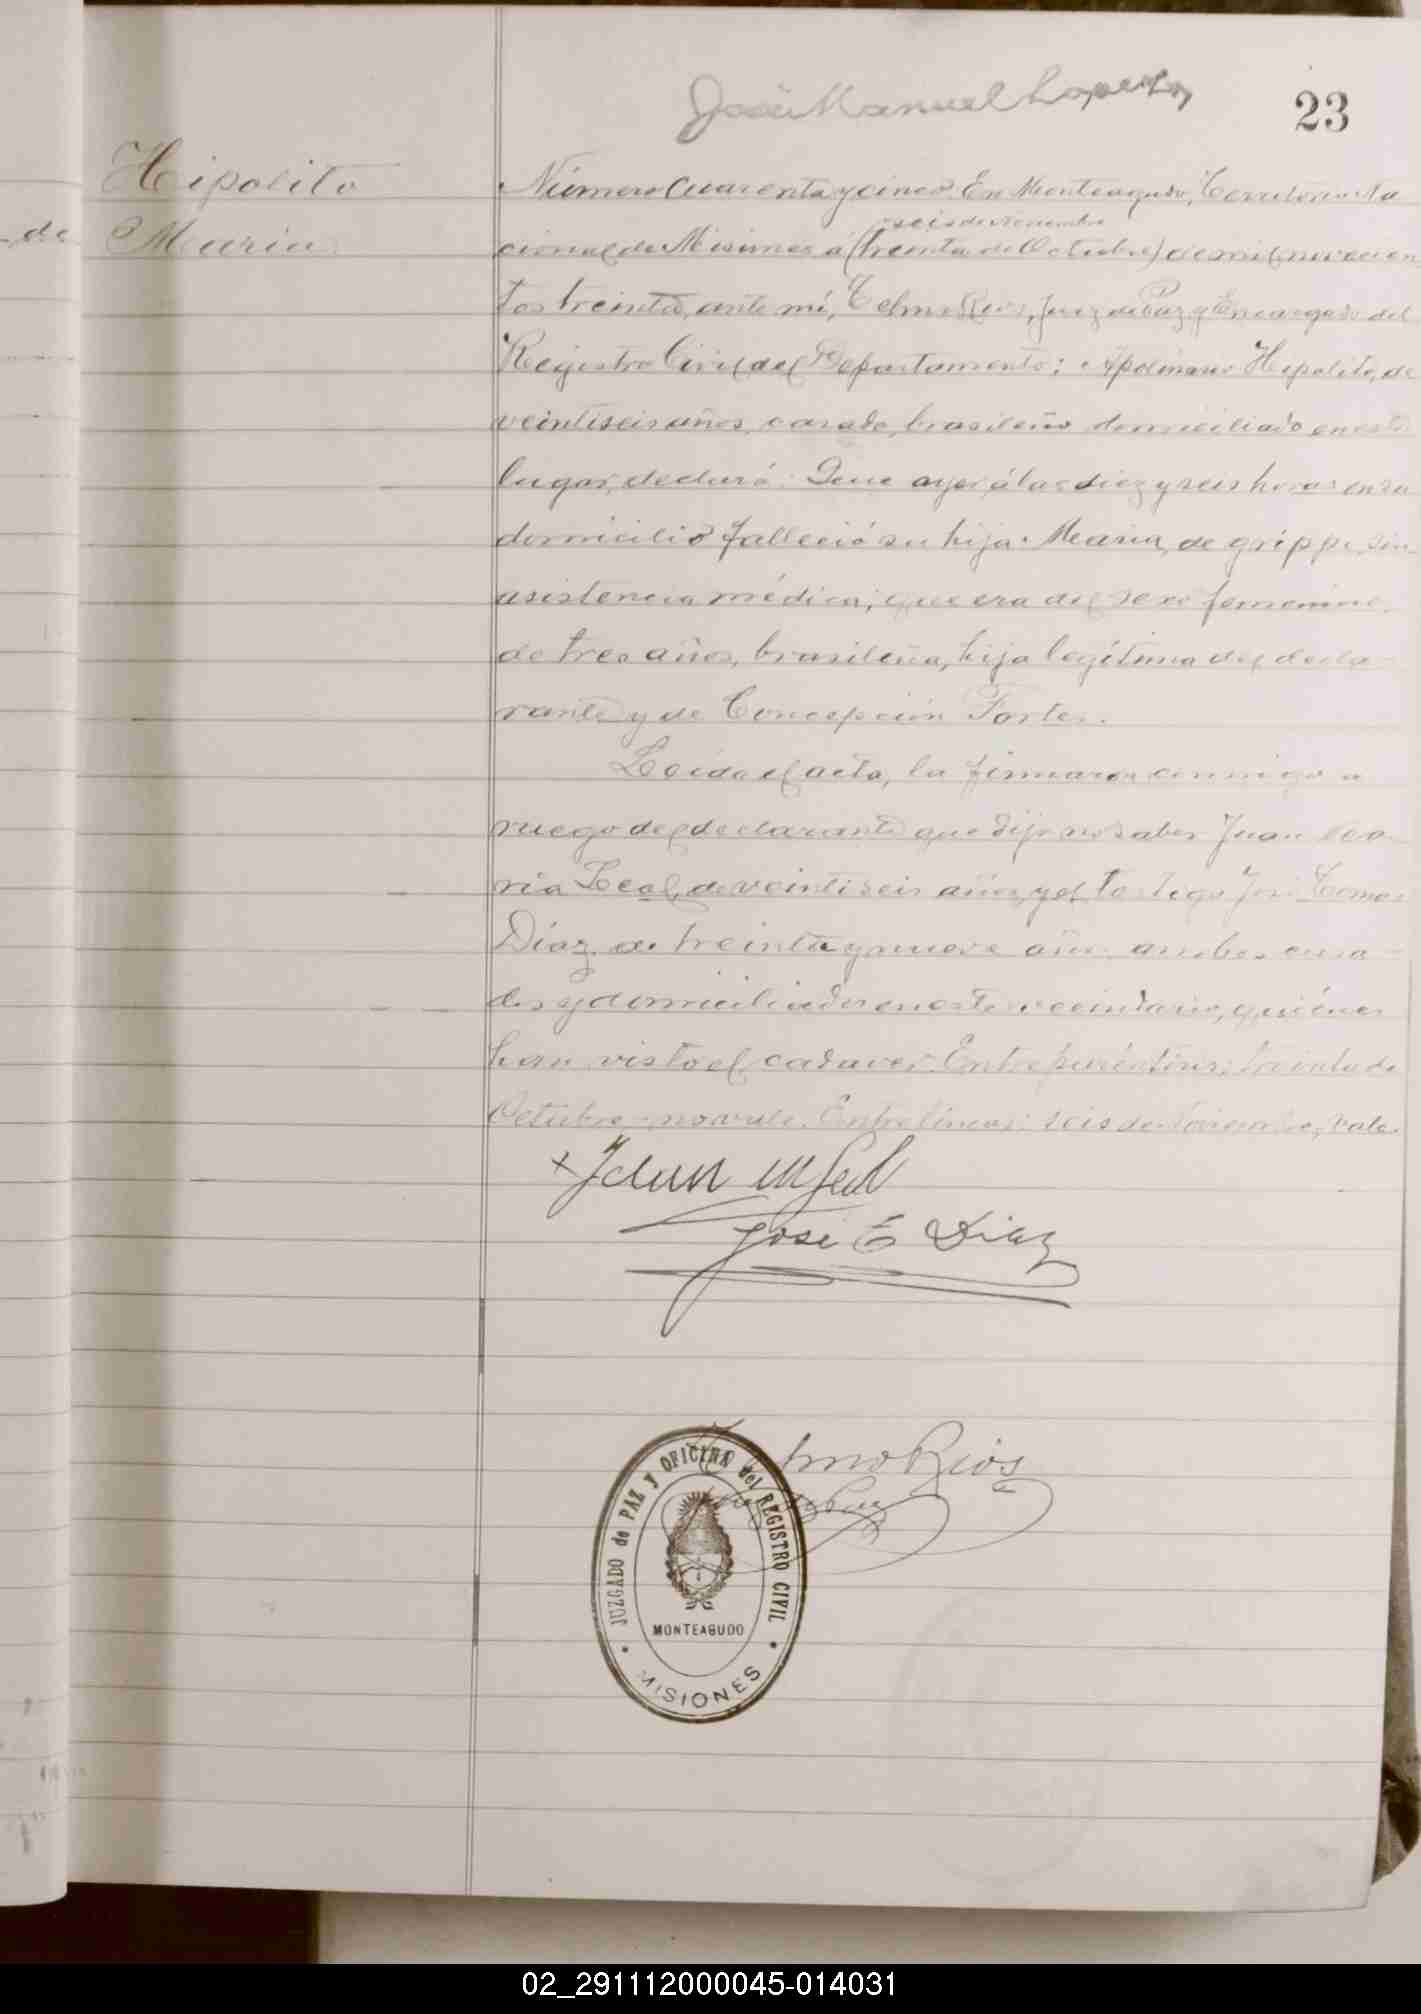 José Manuel Lopes
23
Hipolito
Maria
de
Número cuarenta y cinco. En Monteagudo, Territorio Na
seis de Noviembre
cional de Misiones á (treinta de Octubre) de mil novecien
tos treinta, ante mí, Telmo Rios, Juez de Paz y Encargado del
Registro Civil del Departamento; Apolinario Hipolito, de
veintiseis años, casado, brasileño domiciliado en este
lugar, declaró: Que ayer á las diez y seis horas en su
domicilio falleció su hija Maria, de grippe, sin
asistencia médica; que era del sexo femenino,
de tres años, brasileña, hija legítima del decla-
rante y de Concepción Fortes.
Leida el acta, la firmaron conmigo a
ruego del declarante que dijo no saber Juan Ma
ria Leal, de veintiseis años, y el testigo José
Diaz de treinta y nueve años ambos casa-
dos y domiciliados en este vecindario, quiénes
han visto el cadaver. Entre paréntesis: treinta de
Octubre, no vale. Entre líneas: seis de Noviembre, vale.
x Juan M Leal
José E Diaz
Telmo Rios
Juez de Paz
JUZGADO de PAZ Y OFICINA del REGISTRO CIVIL
MONTEAGUDO
• MISIONES •
02_291112000045-014031